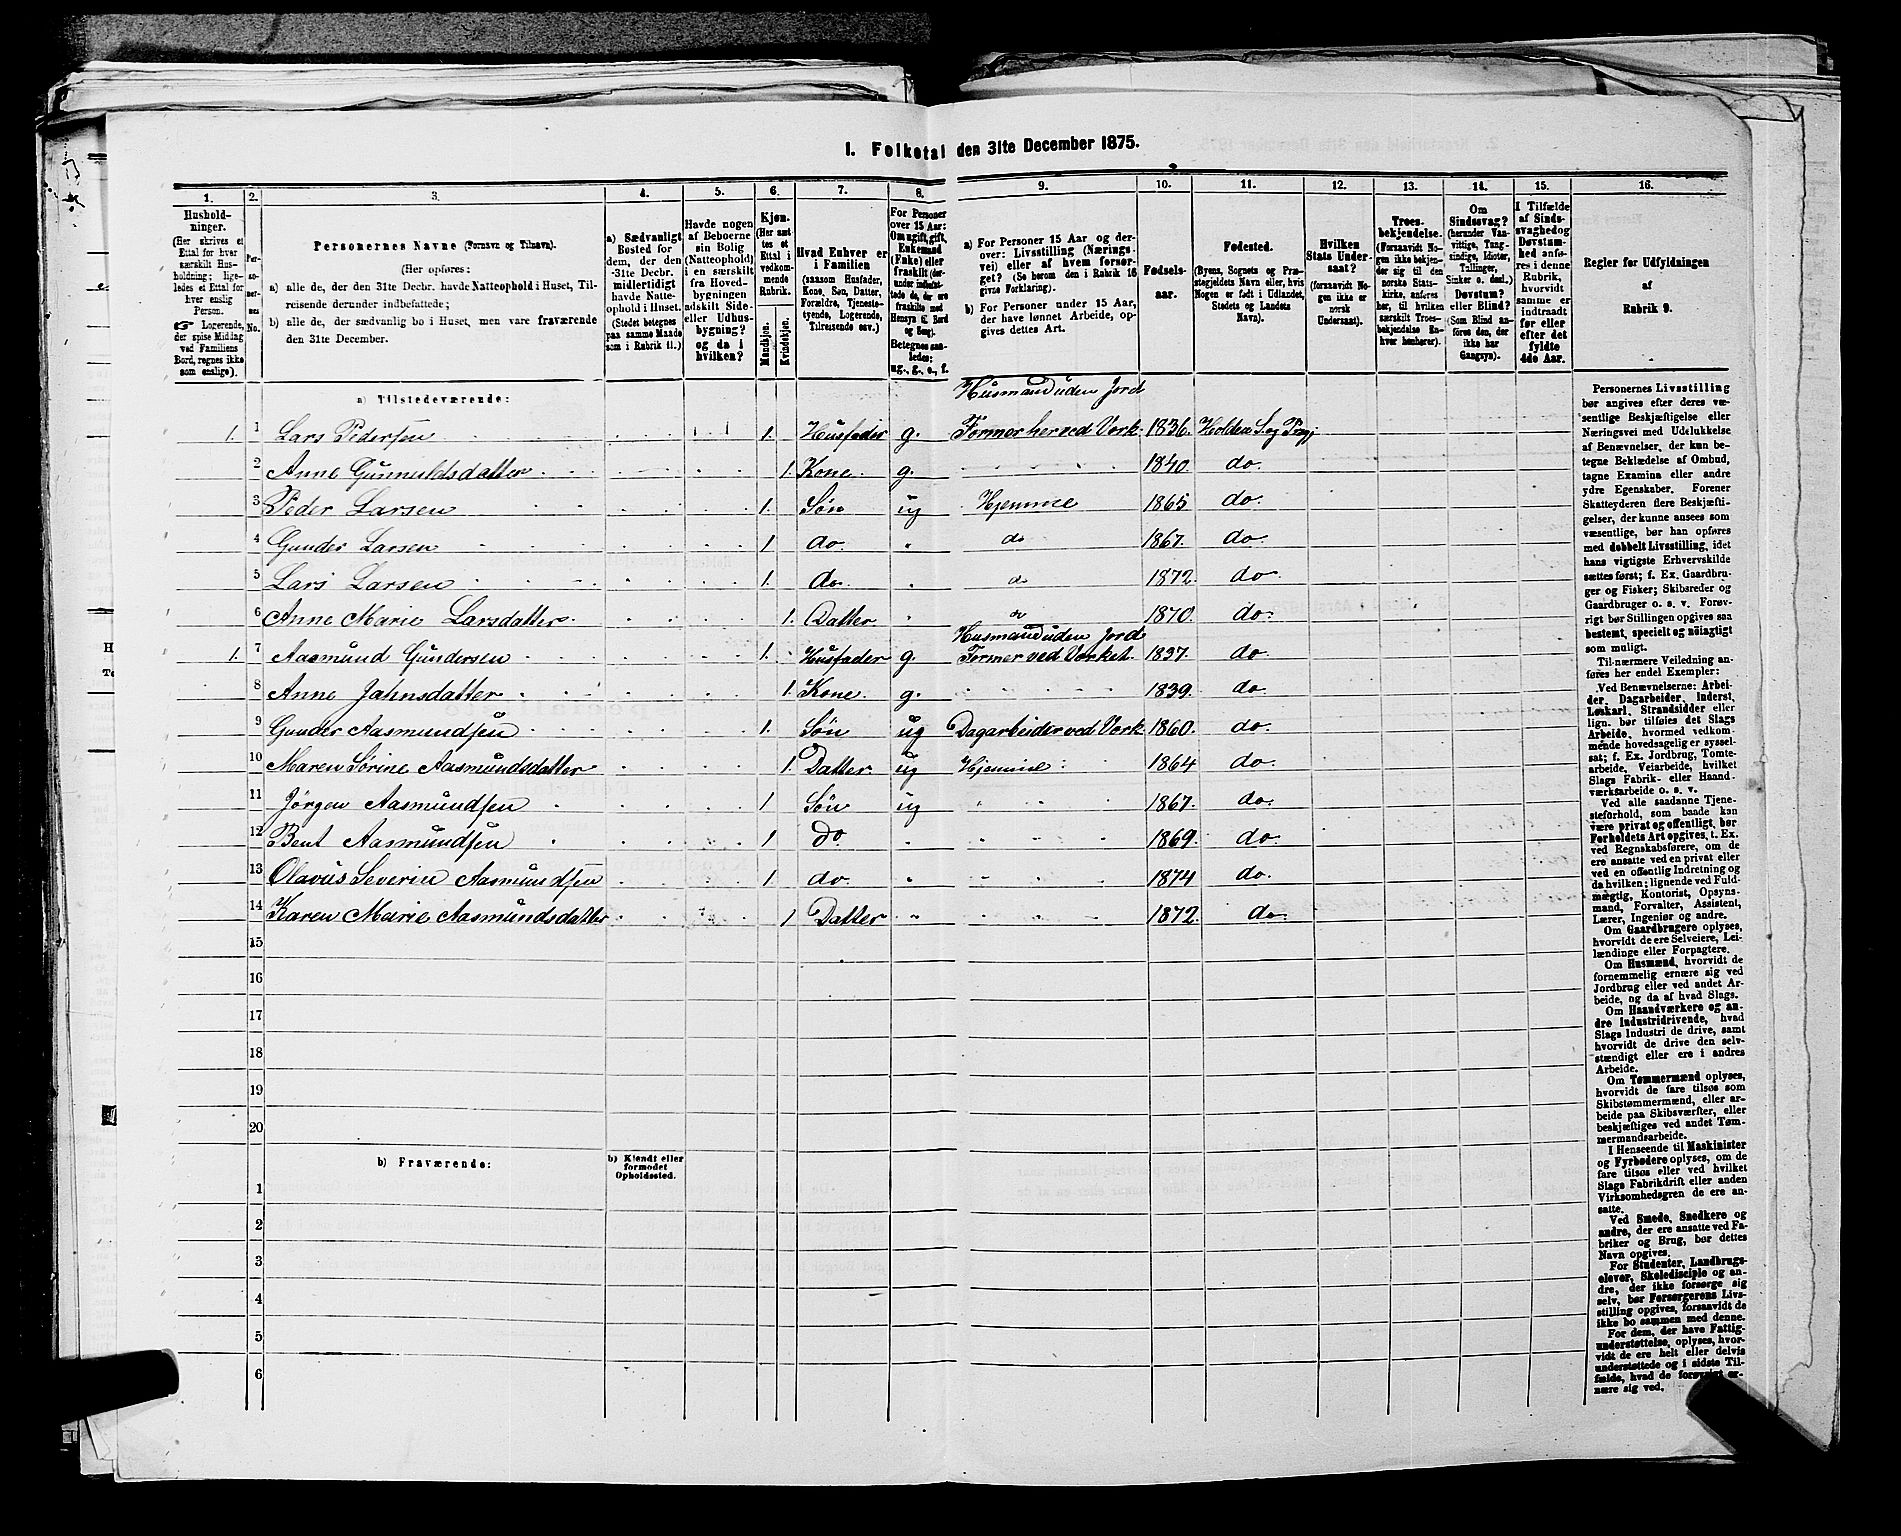 I. Folketal den 31te December 1875.
1. 2. 3. 4. 5. 6. 7. 8. 9. 10. 11. 12. 13. 14. 15. 16.
Hushold-
ninger.
(Her skrives et
Ettal for hver
særskilt Hus-
holdning; lige-
ledes et Ettal for
hver enslig
Person.
☞ Logerende,
der spise Middag
ved Familiens
Bord, regnes ikke
som enslige).
Per-
so-
ner-
nes
No.
Personernes Navne (Fornavn og Tilnavn).
(Her opføres:
a) alle de, der den 31te Decbr. havde Natteophold i Huset, Til-
reisende derunder indbefattede;
b) alle de, der sædvanlig bo i Huset, men vare fraværende
den 31te December.
a) Sædvanligt
Bosted for
dem, der den
31te Decbr.
midlertidigt
havde Natte-
ophold i Huset.
(Stedet betegnes
paa samme Maade
som i Rubrik 11.)
Havde nogen
af Beboerne
sin Bolig
(Natteophold)
i en særskilt
fra Hoved-
bygningen
adskilt Side-
eller Udhus-
bygning?
og da i
hvilken?
Kjøn.
(Her sæt-
tes et
Ettal i
vedkom-
mende
Rubrik.
Mandkjøn.
Kvindekjøn.
Hvad Enhver er
i Familien
(saasom Husfader,
Kone, Søn, Datter,
Forældre, Tjeneste-
tyende, Logerende,
Tilreisende osv.)
For Personer
over 15 Aar:
Om ugift, gift,
Enkemand
(Enke) eller
fraskilt
Betegnes saa-
ledes:
ug., g., e., f.
a) For Personer 15 Aar og der-
over: Livsstilling (Nærings-
vei) eller af hvem forsør-
get? (Se herom den i Rubrik 16
givne Forklaring).
b) For Personer under 15 Aar,
der have lønnet Arbeide, op-
gives dettes Art.
Fødsels-
aar.
Fødested.
(Byens, Sognets og Præ-
stegjeldets Navn eller, hvis
Nogen er født i Udlandet,
Stedets og Landets
Navn).
Hvilken
Stats Under-
saat?
(forsaavidt No-
gen ikke er
norsk
Undersaat).
Troes-
bekjendelse.
(Forsaavidt No-
gen ikke bekjen-
der sig til den
norske Stats-
kirke, anføres
her, til hvilken
særskilt Troes-
bekjendelse En-
hver henhører).
Om
Sindssvag?
(herunder Van-
vittige, Tung-
sindige, Idioter,
Tullinger,
Sinker o. desl.)
Døvstum?
eller Blind?
(Som Blind an-
føres den, der
ikke har
Gangsyn).
I Tilfælde
af Sinds-
svaghed og
Døvstum-
hed anfø-
res i denne
Rubrik,
hvorvidt
samme er
indtraadt
før eller
efter det
fyldte
4de Aar.
Regler for Udfyldningen
af
Rubrik 9.
a) Tilstedeværende:
Husmand uden Jord
1. 1 Lars Pedersen 1. Husfader g. Former her ved Verk. 1836. Holden S. og Prgj
2 Anne Gunnuldsdatter 1. Kone g. 1840 do.
3 Peder Larsen 1. Søn ug Hjemme 1865 do.
4 Gunder Larsen 1 do. " do 1867. do.
5 Lars Larsen 1. do. " do 1872. do.
6 Anne Marie Larsdatter 1. Datter " do 1870. do.
Husmand uden Jord
1. 7 Aasmund Gundersen 1. Husfader g. Former ved Verket. 1837. do.
8 Anne Jahnsdatter 1. Kone. g. 1839. do.
9 Gunder Aasmundsen 1. Søn ug Dagarbeider ved Verk 1860. do.
10 Maren Sørine Aasmundsdatter 1. Datter ug Hjemme 1864 do.
11 Jørgen Aasmundsen 1 Søn ug " 1867. do.
12 Bent Aasmundsen 1 Do. " " 1869. do.
13 Olavus Severin Aasmundsen 1. do. " " 1874 do.
14 Karen Marie Aasmundsdatter 1 Datter " " 1872. do.
15
16
17
18
19
20
b) Fraværende:
b) Kjendt eller
formodet
Opholdssted.
1
2
3
4
5
6
Personernes Livsstilling
bør angives efter deres væ-
sentlige Beskjæftigelse eller
Næringsvei med Udelukkelse
af Benævnelser, der kun be-
tegne Beklædelse af Ombud,
tagne Examina eller andre
ydre Egenskaber. Forener
Skatteyderen flere Beskjæfti-
gelser, der kunne ansees som
væsentlige, bør han opføres
med dobbelt Livsstilling, idet
hans vigtigste Erhvervskilde
sættes først; f. Ex. Gaardbru-
ger og Fisker; Skibsreder og
Gaardbruger o. s. v. Forøv-
rigt bør Stillingen opgives saa
bestemt, specielt og nøiagtigt
som muligt.
Til nærmere Veiledning an-
føres her endel Exempler:
Ved Benævnelserne: Arbei-
der, Dagarbeider, Inderst,
Løskarl, Strandsidder eller
lign. bør tilføies det Slags
Arbeide, hvormed vedkom-
mende hovedsagelig er syssel-
sat; f. Ex. Jordbrug, Tomte-
arbeide, Veiarbeide, hvilket
Slags Fabrik- eller Haand-
værksarbeide o. s. v.
Ved alle saadanne Tjene-
steforhold, som baade kan
være privat og offentligt, bør
Forholdets Art opgives, t. Ex.
ved Regnskabsførere, om de
ere ansatte ved en privat eller
ved en offentlig Indretning og
da hvilken; lignende ved Fuld-
mægtig, Kontorist, Opsyns-
mand, Forvalter, Assistent,
Lærer, Ingeniør og andre.
Om Gaardbrugere oplyses,
hvorvidt de ere Selveiere, Lei-
lændinge eller Forpagtere.
Om Husmænd, hvorvidt de
fornemmelig ernære sig ved
Jordbrug eller ved andet Ar-
beide, og da af hvad Slags.
Om Haandværkere og an-
dre Industridrivende, hvad
Slags Industri de drive, samt
hvorvidt de drive den selv-
stændigt eller ere i andres
Arbeide.
Om Tømmermænd oplyses,
hvorvidt de fare tilsøs som
Skibstømmermænd, eller ar-
beide paa Skibsværfter, eller
beskjæftiges ved andet Tøm-
mermandsarbeide.
I Henseende til Maskinister
og Fyrbødere oplyses, om de
fare tilsøs eller ved hvilket
Slags Fabrikdrift eller anden
Virksomhedsgren de ere an-
satte.
Ved Smede, Snedkere og
andre, der ere ansatte ved Fa-
briker og Brug, bør dettes
Navn opgives.
For Studenter, Landbrugs-
elever, Skoledisciple og an-
dre, der ikke forsørge sig
selv, bør Forsørgerens Livs-
stilling opgives, forsaavidt de
ikke bo sammen med denne.
For dem, der have Fattig-
understøttelse, oplyses, hvor-
vidt de ere helt eller delvis
understøttede og i sidste Til-
fælde, hvad de forøvrigt er-
nære sig ved.